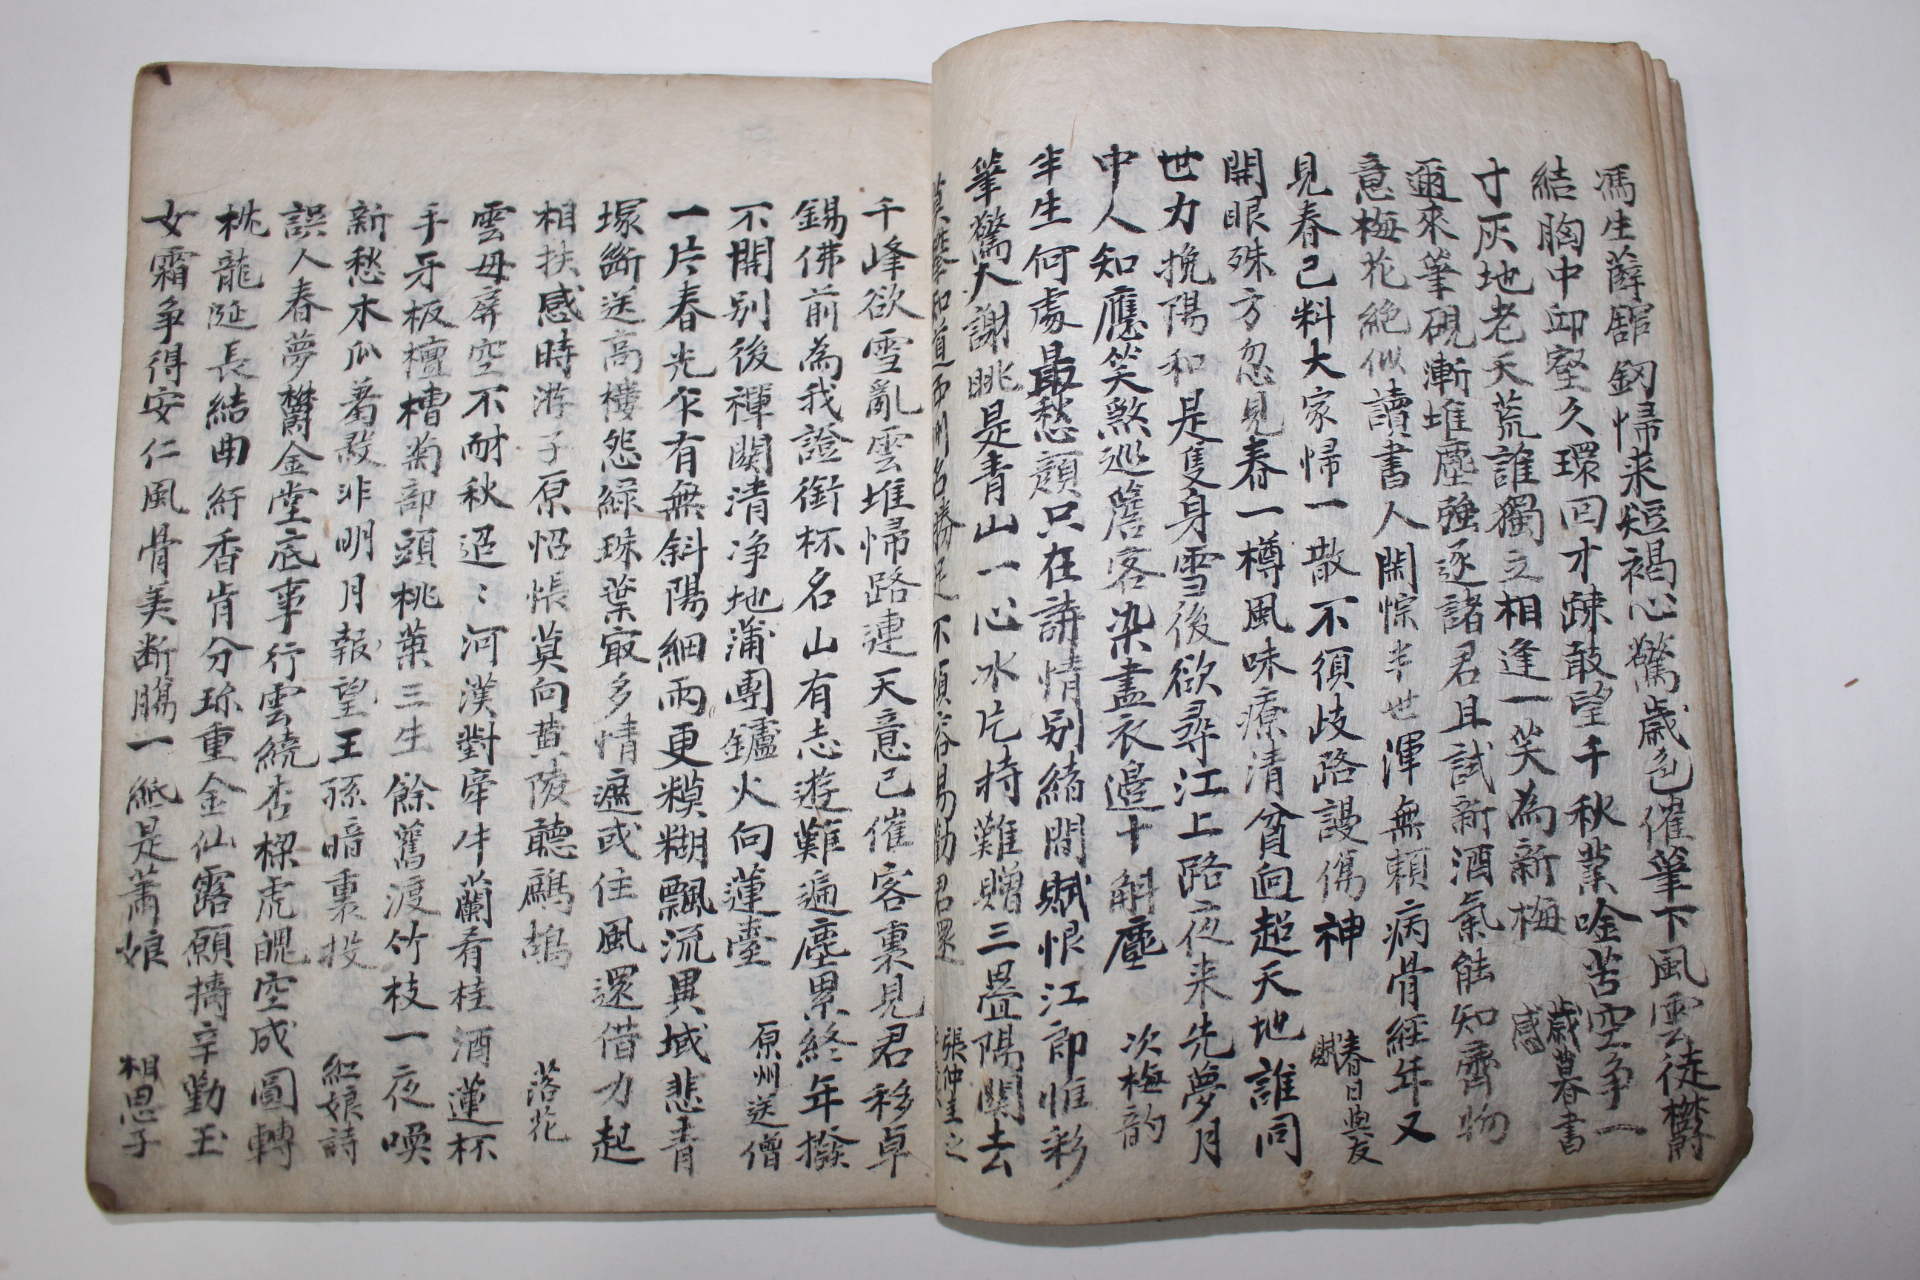 馮生薛舘鋏歸来短褐心驚歲色催筆下風雲徒欝
結胸中邱壑久環回才踈敢望千秋業唫苦空争一
寸灰地老天荒誰獨立相逢一笑為新梅 歲暮書感
邇來筆硯漸堆塵強逐諸君且試新酒氣能知齊物
意梅花絶似讀書人閑悰半世渾無頼病骨經年又
見春已料大家歸一散不須歧路謾傷神 春日與友
開眼殊方忽見春一樽風味療清貧迴超天地誰同
世力挽陽和是隻身雪後欲尋江上路夜来先夢月
中人知應笑煞巡簷客染盡衣邉十斛塵 次梅韵
半生何處最愁顔只在詩情别緒間賦恨江郎惟彩
筆驚人謝眺是青山一心冰片持難贈三疊陽關去
莫 知道西 名勝足不須容易勸君還 張仲
千峰欲雪亂雲堆歸路連天意已催客裏見君移卓
錫佛前為我證銜杯名山有志遊難遍塵累終年撥
不開别後禪關清净地蒲團鑪火向蓮臺 原州送僧
一片春光乍有無斜陽細雨更糢糊飄流異域悲青
塚斷送高樓怨緑珠葉㝡多情遮或住風還借力起
相扶感時游子原怊悵莫向黄陵聽鷓鴣 落花
雲母屏空不耐秋迢〻河漢對牵牛蘭肴桂酒蓮杯
手牙板檀槽菊部頭桃葉三生餘舊渡竹枝一夜喚
新愁木瓜蓍 非明月報望王孫暗裏投 紅娘詩
誤人春夢欝金堂底事行雲繞杏樑虎魄空成圓轉
枕龍涎長結曲紆香肯分珎重金仙露願擣辛勤玉
女霜争得安仁風骨美断膓一紙是蕭娘 相思子